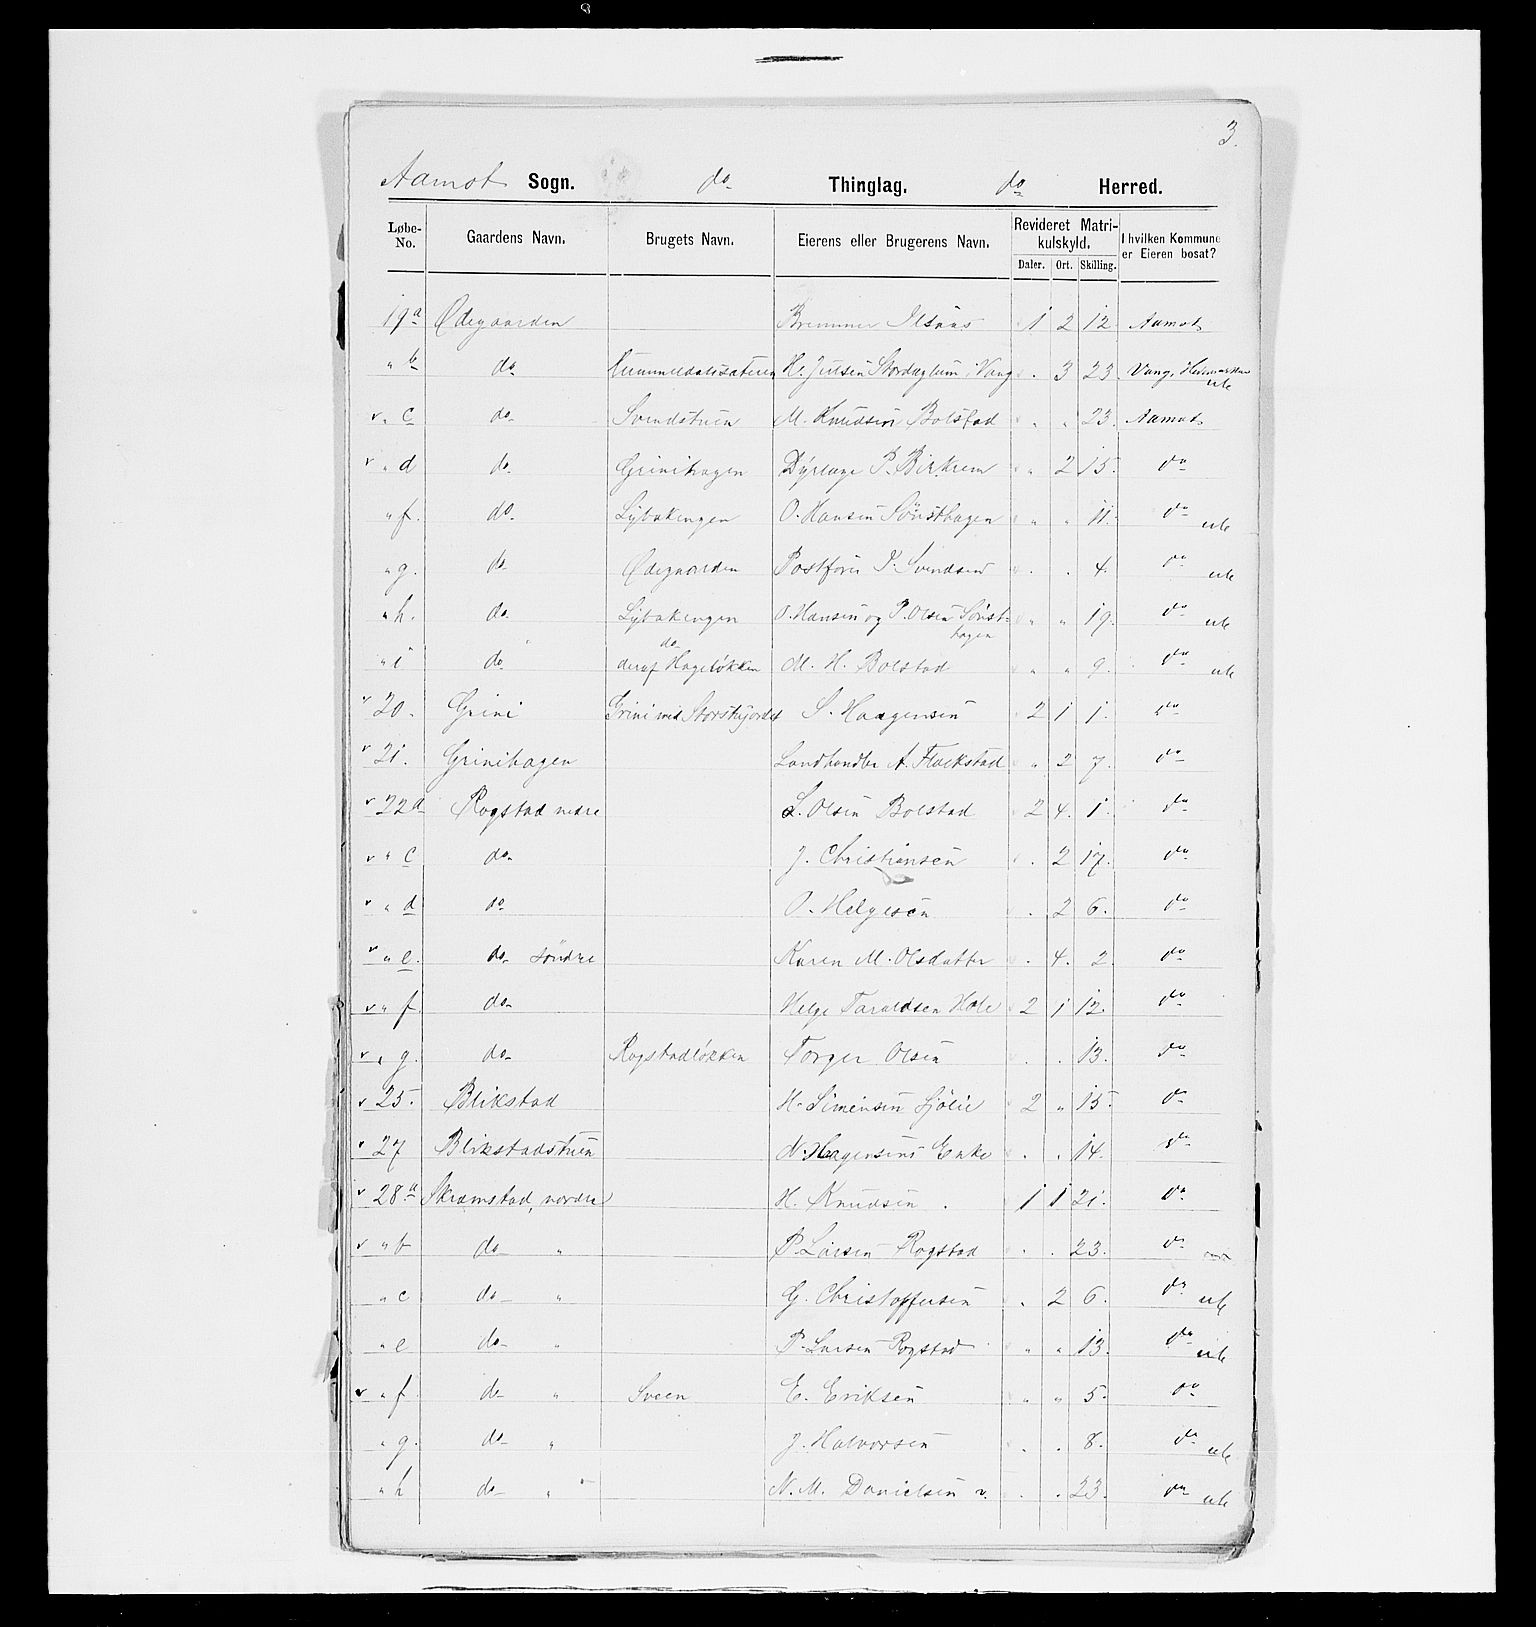 3.
Aamot Sogn. do Thinglag. do Herred.
Løbe-No. Gaardens Navn. Brugets Navn. Eierens eller Brugerens Navn. Revideret Matrikulskyld. Daler. Ort. Skilling. I hvilken Kommune er Eieren bosat?
19a Ødegaarden Ilsaas 1 2 12 Aamot
" b do H. Julsen i Vang . 3 23 Vang, Hedemarken
v " c do Svendstuen M. Knudsen Bolstad " " 23 Aamot
v " d do Grinihagen P. Birkrem " 2 15 do
" f. do O. Hansen Sønsthagen " " 11. do
" g. do Ødegaarden Svendsen . . 4. do
" h. do O. Hansen og P. Olsen Sønsthagen " " 19. do
" i do do deraf Hageløkken M. H. Bolstad " " 9. do
v 20. Grini Grini med S. Haagensen 2 1 1. do
v 21. Grinihagen Landhandler A. Flackstad " 2 7. do
v 22a Rogstad nedre L. Olsen Bolstad 2 4. 1. do
v " c do J. Christiansen . 2 17. do
v " d do O. Helgesen . 2 6. do
v " e. do søndre Karen M. Olsdatter . 4. 2. do
v " f do Helge Taraldsen Hole 2 1 12. do
v " g. do Rogstadløkken Torger Olsen . . 13. do
v 25. Blikstad H. Simensen Sjølie 2 " 15. do
v 27 Blikstadstuen N. Hagensens Enke . . 14. do
v 28a Skramstad, nordre H. Knudsen 1 1 21. do
v " b do " P. Larsen Rogstad . . 23. do
" c do " G. Christoffersen . 2 6. do
" e do " P. Larsen Rogstad " " 13. do
v " f do " Sveen E. Eriksen " " 5. do
" g. do " J. Halvorsen . . 8. do
" h do " N. M. Danielsen . . 23. do